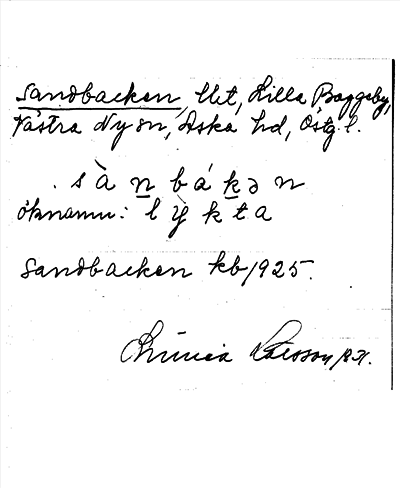 Sandbacken, lht, Lilla Baggeby,
Västra Ny sn, Aska hd, Östg. l.
sàn̲bák̲ən
öknamn: lỳkta
Sandbacken kb 1925.
Linnéa Larsson